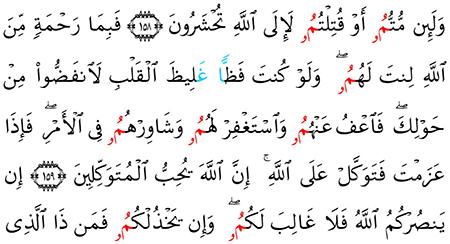 وَلَئِن مُّتُّمُۥ أَوْ قُتِلْتُمُۥ لَإِلَى ٱللَّهِ تُحْشَرُونَ ١٥٨ فَبِمَا رَحْمَةٍ مِّنَ
ٱللَّهِ لِنتَ لَهُمُۥ ۖ وَلَوْ كُنتَ فَظًّا غَلِيظَ ٱلْقَلْبِ لَٱنفَضُّوا۟ مِنْ
حَوْلِكَ ۖ فَٱعْفُ عَنْهُمُۥ وَٱسْتَغْفِرْ لَهُمُۥ وَشَاوِرْهُمُۥ فِى ٱلْأَمْرِ ۖ فَإِذَا
عَزَمْتَ فَتَوَكَّلْ عَلَى ٱللَّهِ ۚ إِنَّ ٱللَّهَ يُحِبُّ ٱلْمُتَوَكِّلِينَ ١٥٩ إِن
يَنصُرْكُمُ ٱللَّهُ فَلَا غَالِبَ لَكُمُۥ ۖ وَإِن يَخْذُلْكُمُۥ فَمَن ذَا ٱلَّذِى